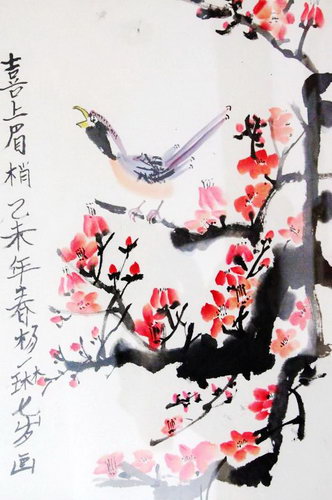 喜上眉梢乙未年春杨琳七岁画